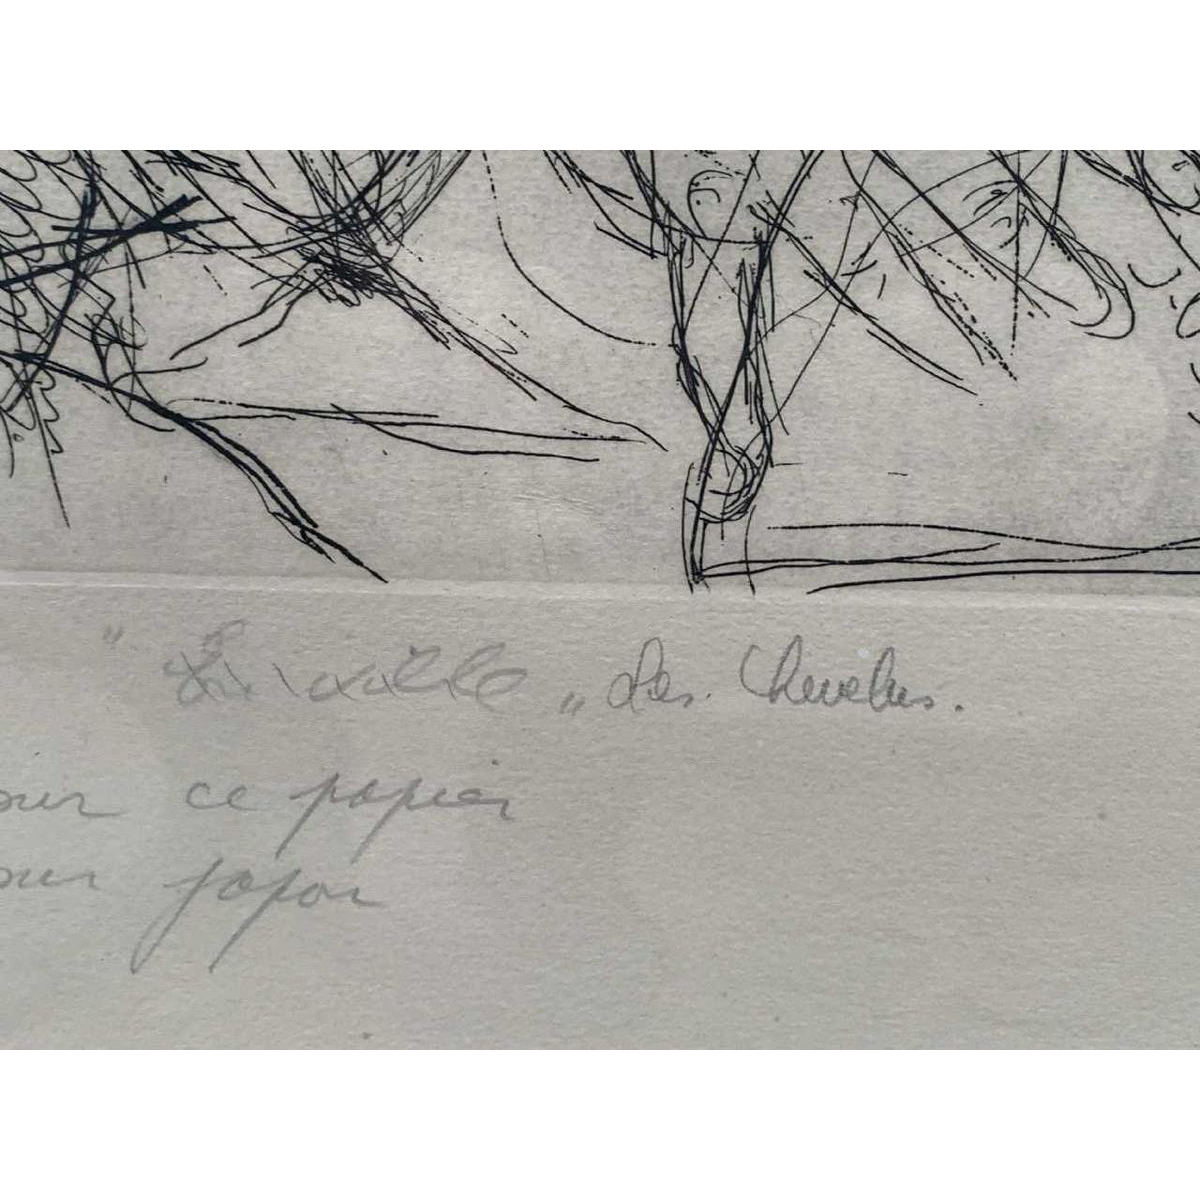 „ Les Chevelus.
sur ce papier
sur japon